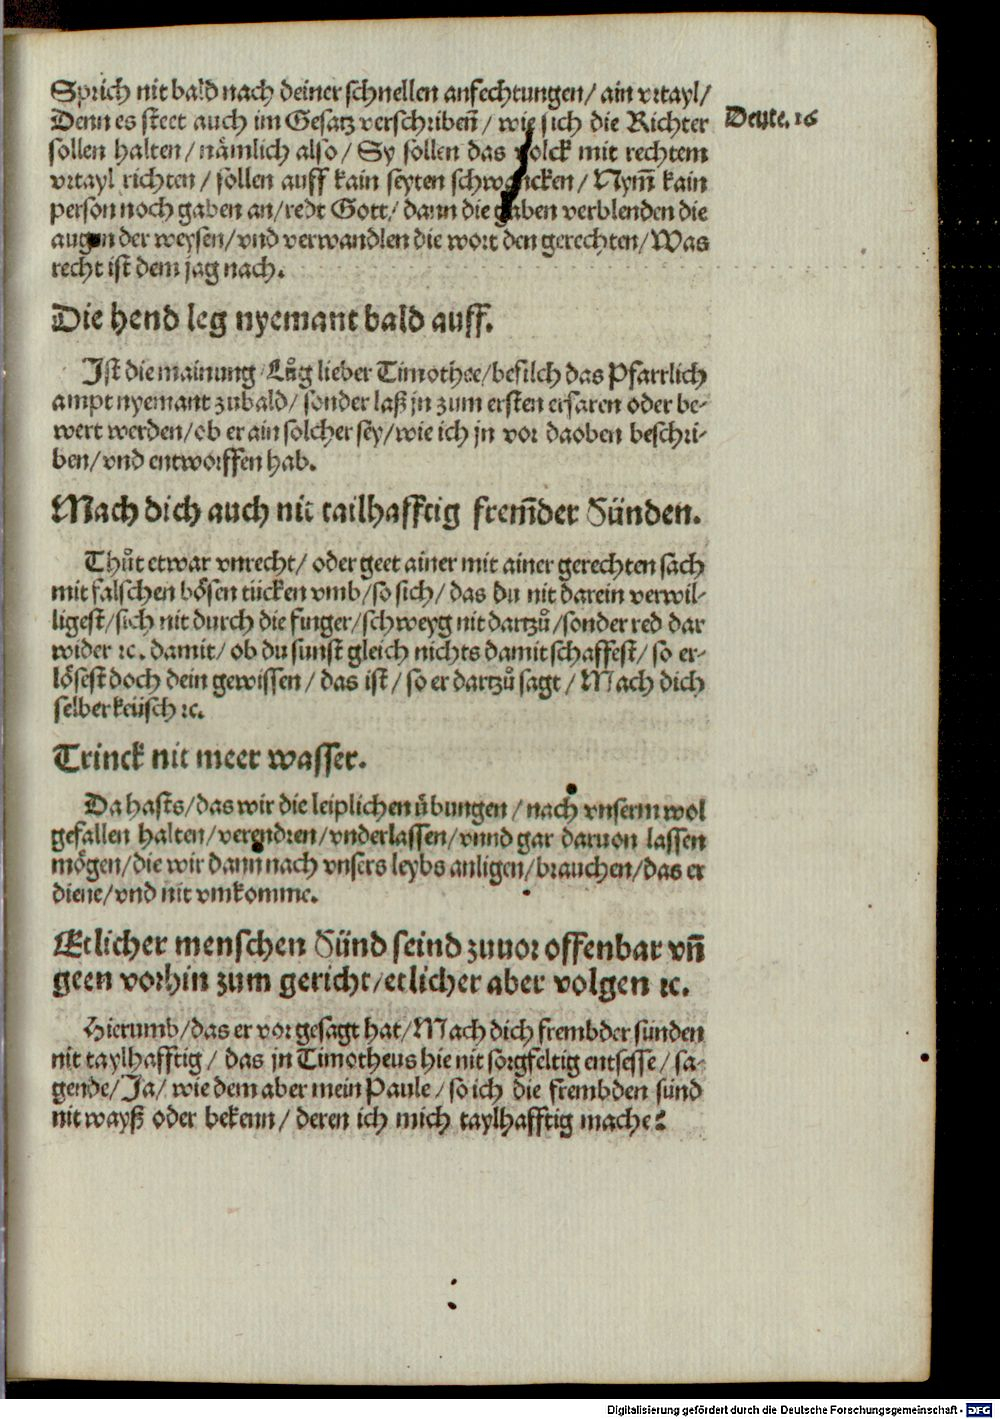 Sprich nit bald nach deiner schnellen anfechtungen/ ain vrtayl/
Denn es steet auch im Gesatz verschribeñ/ wie sich die Richter
Deute. 16
sollen halten/ nämlich also/ Sy sollen das volck mit rechtem
vrtayl richten/ sollen auff kain seyten schwancken/ Nym̃ kain
person noch gaben an/ redt Gott/ dann die gaben verblenden die
augen der weysen/ vnd verwandlen die wort den gerechten/ Was
recht ist dem jag nach.
Die hend leg nyemant bald auff.
Ist die mainung/ Lůg lieber Timothee/ befilch das Pfarrlich
ampt nyemant zubald/ sonder laß jn zum ersten erfaren oder be-
wert werden/ ob er ain solcher sey/ wie ich jn vor daoben beschri-
ben/ vnd entworffen hab.
Mach dich auch nit tailhafftig frem̃der Sünden.
Thůt etwar vnrecht/ oder geet ainer mit ainer gerechten sach
mit falschen bösen tücken vmb/ so sich/ das du nit darein verwil-
ligest/ sich nit durch die finger/ schweyg nit dartzů/ sonder red dar
wider ꝛc. damit/ ob du sunst gleich nichts damit schaffest/ so er-
lösest doch dein gewissen/ das ist/ so er dartzů sagt/ Mach dich
selber keüsch ꝛc.
Trinck nit meer wasser.
Da hasts/ das wir die leiplichen übungen/ nach vnserm wol
gefallen halten/ verendren/ vnderlassen/ vnnd gar daruon lassen
mögen/ die wir dann nach vnsers leybs anligen/ brauchen/ das er
diene/ vnd nit vmkomme.
Etlicher menschen Sünd seind zuuor offenbar vñ
geen vorhin zum gericht/ etlicher aber volgen ꝛc.
Hierumb/ das er vor gesagt hat/ Mach dich frembder sünden
nit taylhafftig/ das jn Timotheus hie nit sorgfeltig entsesse/ sa-
gende/ Ja/ wie dem aber mein Paule/ so ich die frembden sünd
nit wayß oder bekenn/ deren ich mich taylhafftig mache?
Digitalisierung gefördert durch die Deutsche Forschungsgemeinschaft - DFG